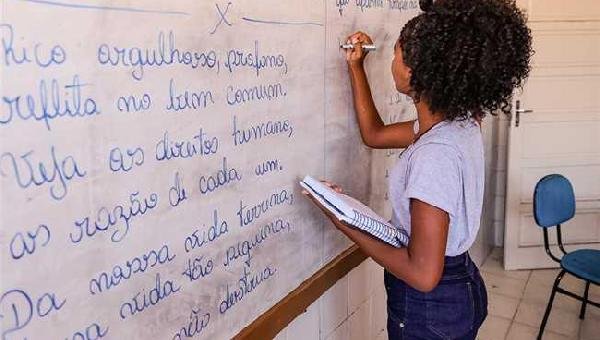 X
Rico orgulhoso, profano,
reflita no bem comum.
Veja os direitos humano,
as razão de cada um.
Da nossa vida terrena,
vida tão piquena,
destina.